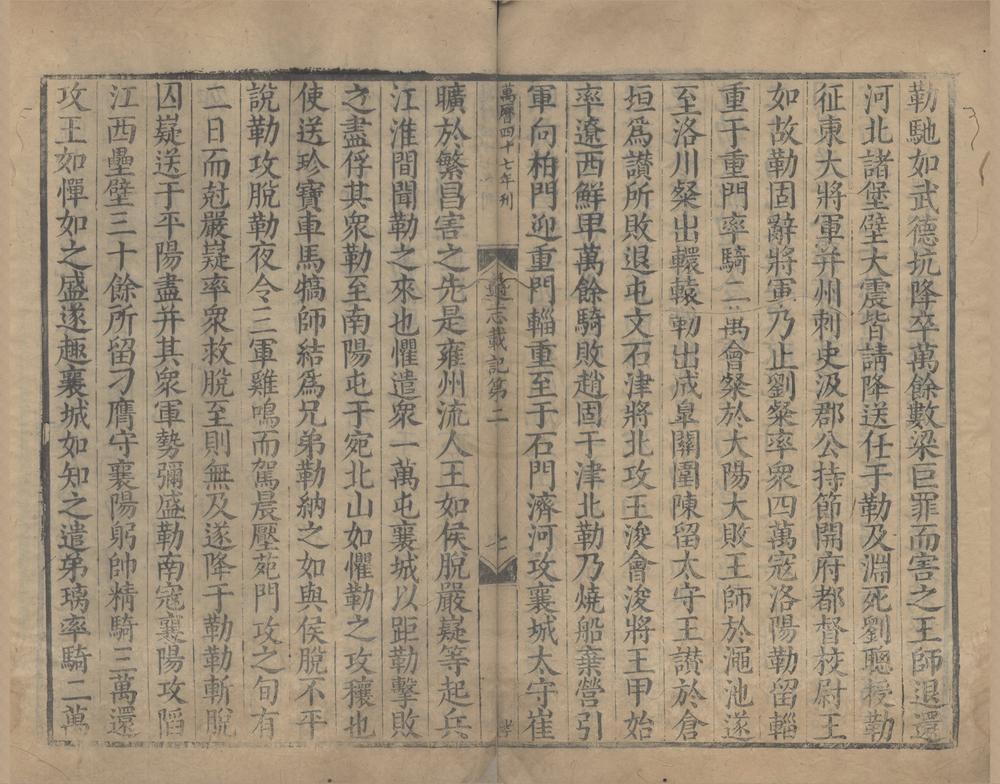 勒馳如武德抗降卒萬餘數梁巨罪而害之王師退還
河北諸堡壁大震皆請降送任于勒及淵死劉聰授勒
征東大將軍并州刺史汲郡公持節開府都督校尉王
如故勒固辭將軍乃止劉粲率衆四萬寇洛陽勒留輜
重于重門率騎二萬會粲於大陽大敗王師於澠池遂
至洛川粲出轘轅勒出成皐關圍陳留太守王讃於倉
垣爲讃所敗退屯文石津將北攻王浚會浚將王甲始
率遼西鮮卑萬餘騎敗趙固于津北勒乃燒船棄營引
軍向柏門迎重門輜重至于石門濟河攻襄城太守崔
萬曆四十七年刊
通志載記第二
七
曠於繁昌害之先是雍州流人王如侯脫嚴嶷等起兵
江淮間聞勒之來也懼遣衆一萬屯襄城以距勒擊敗
之盡俘其衆勒至南陽屯于宛北山如懼勒之攻穰也
使送珍寶車馬犒師結爲兄弟勒納之如與侯脫不平
說勒攻脫勒夜令三軍雞鳴而駕晨壓苑門攻之旬有
二日而尅嚴嶷率衆救脫至則無及遂降于勒勒斬脫
囚嶷送于平陽盡并其衆軍勢彌盛勒南寇襄陽攻䧟
江西壘壁三十餘所留刁膺守襄陽躬帥精騎三萬還
攻王如憚如之盛遂趣襄城如知之遣弟璃率騎二萬